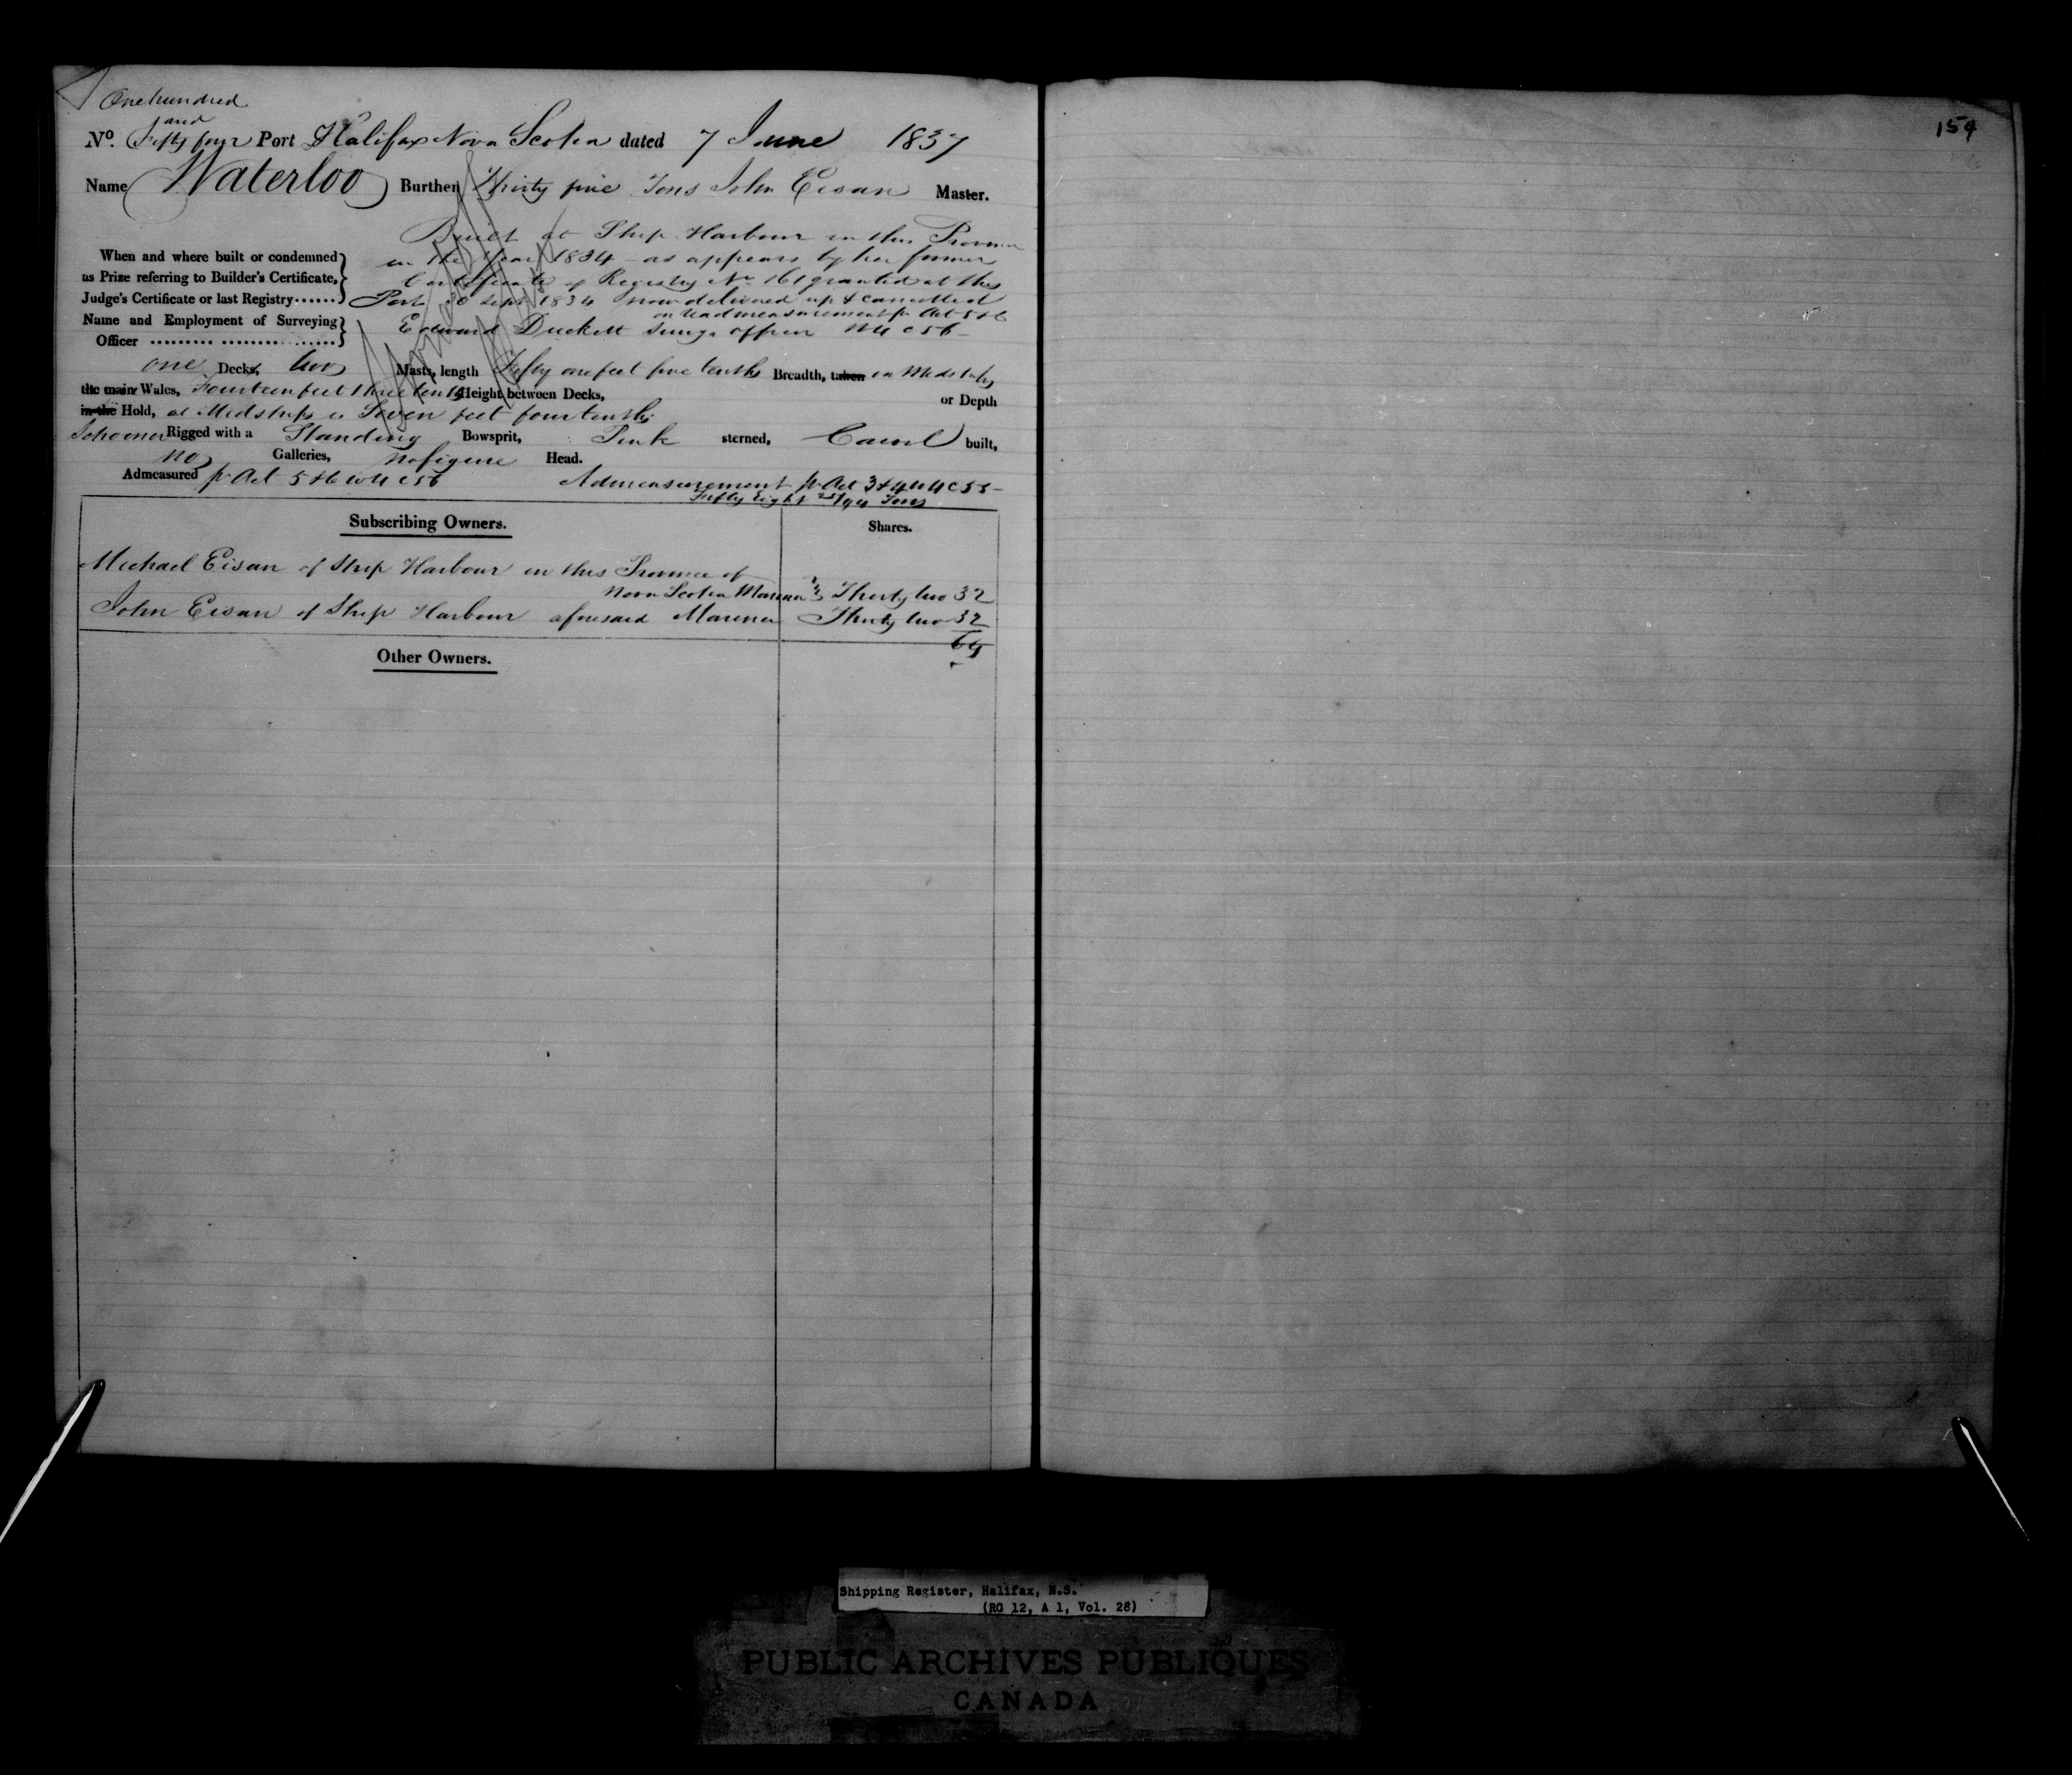 One hundred
and
No. Fifty four Port Halifax Nova Scotia dated 7 June 1837
Name Waterloo Burthen Thirty five Tons John Eisan Master.
Built at Ship Harbour in this Province
in the Year 1834 - as appears by her former
When and where built or condemned
as Prize referring to Builder's Certificate,
Judge's Certificate or last Registry......
Certificate of Registry No. 161 granted at this
Port 30 Sept 1834 now delivered up & cancelled
on readmeasurement pr Act 5 & 6
Name and Employment of Surveying
Officer
Edward Duckett Survg. officer W4 C 56 -
one Decks, two Masts, length Fifty one feet five tenths Breadth, taken in Midships
the main Wales, Fourteen feet three tenths Height between Decks, or Depth
in the Hold, at Midships is Seven feet four tenths
Schooner Rigged with a Standing Bowsprit, Pink sterned, Carvel built,
no Galleries, No figure Head.
Admeasured pr Act 5 & 6 W4 C 56 Admeasurement pr Act 3 & 4 W4 C 55 -
Fifty Eight 25/94 Tons
Subscribing Owners. Shares.
Michael Eisan of Ship Harbour in this Province of
Nova Scotia Mariner Thirty two 32
John Eisan of Ship Harbour aforesaid Mariner Thirty two 32
64
Other Owners.
154
Shipping Register, Halifax, N.S.
(RG 12, A 1, Vol. 28)
PUBLIC ARCHIVES PUBLIQUES
CANADA